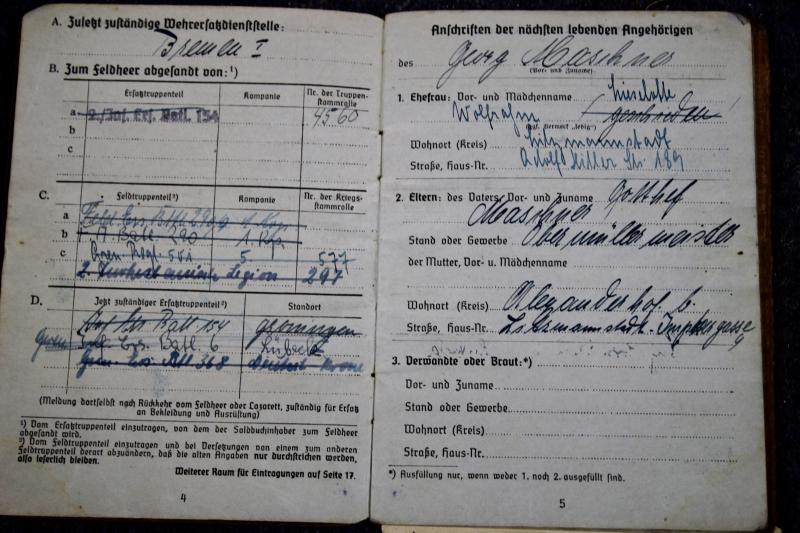 A. Zuletzt zuständige Wehrersatzdienststelle:
Bremen I
B. Zum Feldheer abgesandt von:¹)
Ersatztruppenteil Kompanie Nr. der Truppenstammrolle
a 2./Inf. Ers. Batl. 154 4560
b
c
C. Feldtruppenteil²) Kompanie Nr. der Kriegsstammrolle
a Feld Ers. Batl.
b 1 Kp.
c Gren. Regt. 5 577
2. Legion 297
D. Jetzt zuständiger Ersatztruppenteil²) Standort
Inf. Ers. Batl. 154
Ers. Batl. 6 Lübeck
Gren. Ers. Batl. 368
(Meldung dortselbst nach Rückkehr vom Feldheer oder Lazarett, zuständig für Ersatz
an Bekleidung und Ausrüstung)
¹) Vom Ersatztruppenteil einzutragen, von dem der Soldbuchinhaber zum Feldheer
abgesandt wird.
²) Vom Feldtruppenteil einzutragen und bei Versetzungen von einem zum anderen
Feldtruppenteil derart abzuändern, daß die alten Angaben nur durchstrichen werden,
also leserlich bleiben.
Weiterer Raum für Eintragungen auf Seite 17.
4
Anschriften der nächsten lebenden Angehörigen
des Georg Maschner
(Vor- und Zuname)
1. Ehefrau: Vor- und Mädchenname Lieselotte
Wolfrahm (geschieden)
(ggf. Vermerk „ledig“)
Wohnort (Kreis) Litzmannstadt
Straße, Haus-Nr. Adolf Hitler Str. 189
2. Eltern: des Vaters, Vor- und Zuname Gotthilf
Maschner
Stand oder Gewerbe Obermüllermeister
der Mutter, Vor- u. Mädchenname
Wohnort (Kreis) Alexanderhof b.
Straße, Haus-Nr. Litzmannstadt
3. Verwandte oder Braut:*)
Vor- und Zuname
Stand oder Gewerbe
Wohnort (Kreis)
Straße, Haus-Nr.
*) Ausfüllung nur, wenn weder 1. noch 2. ausgefüllt sind.
5